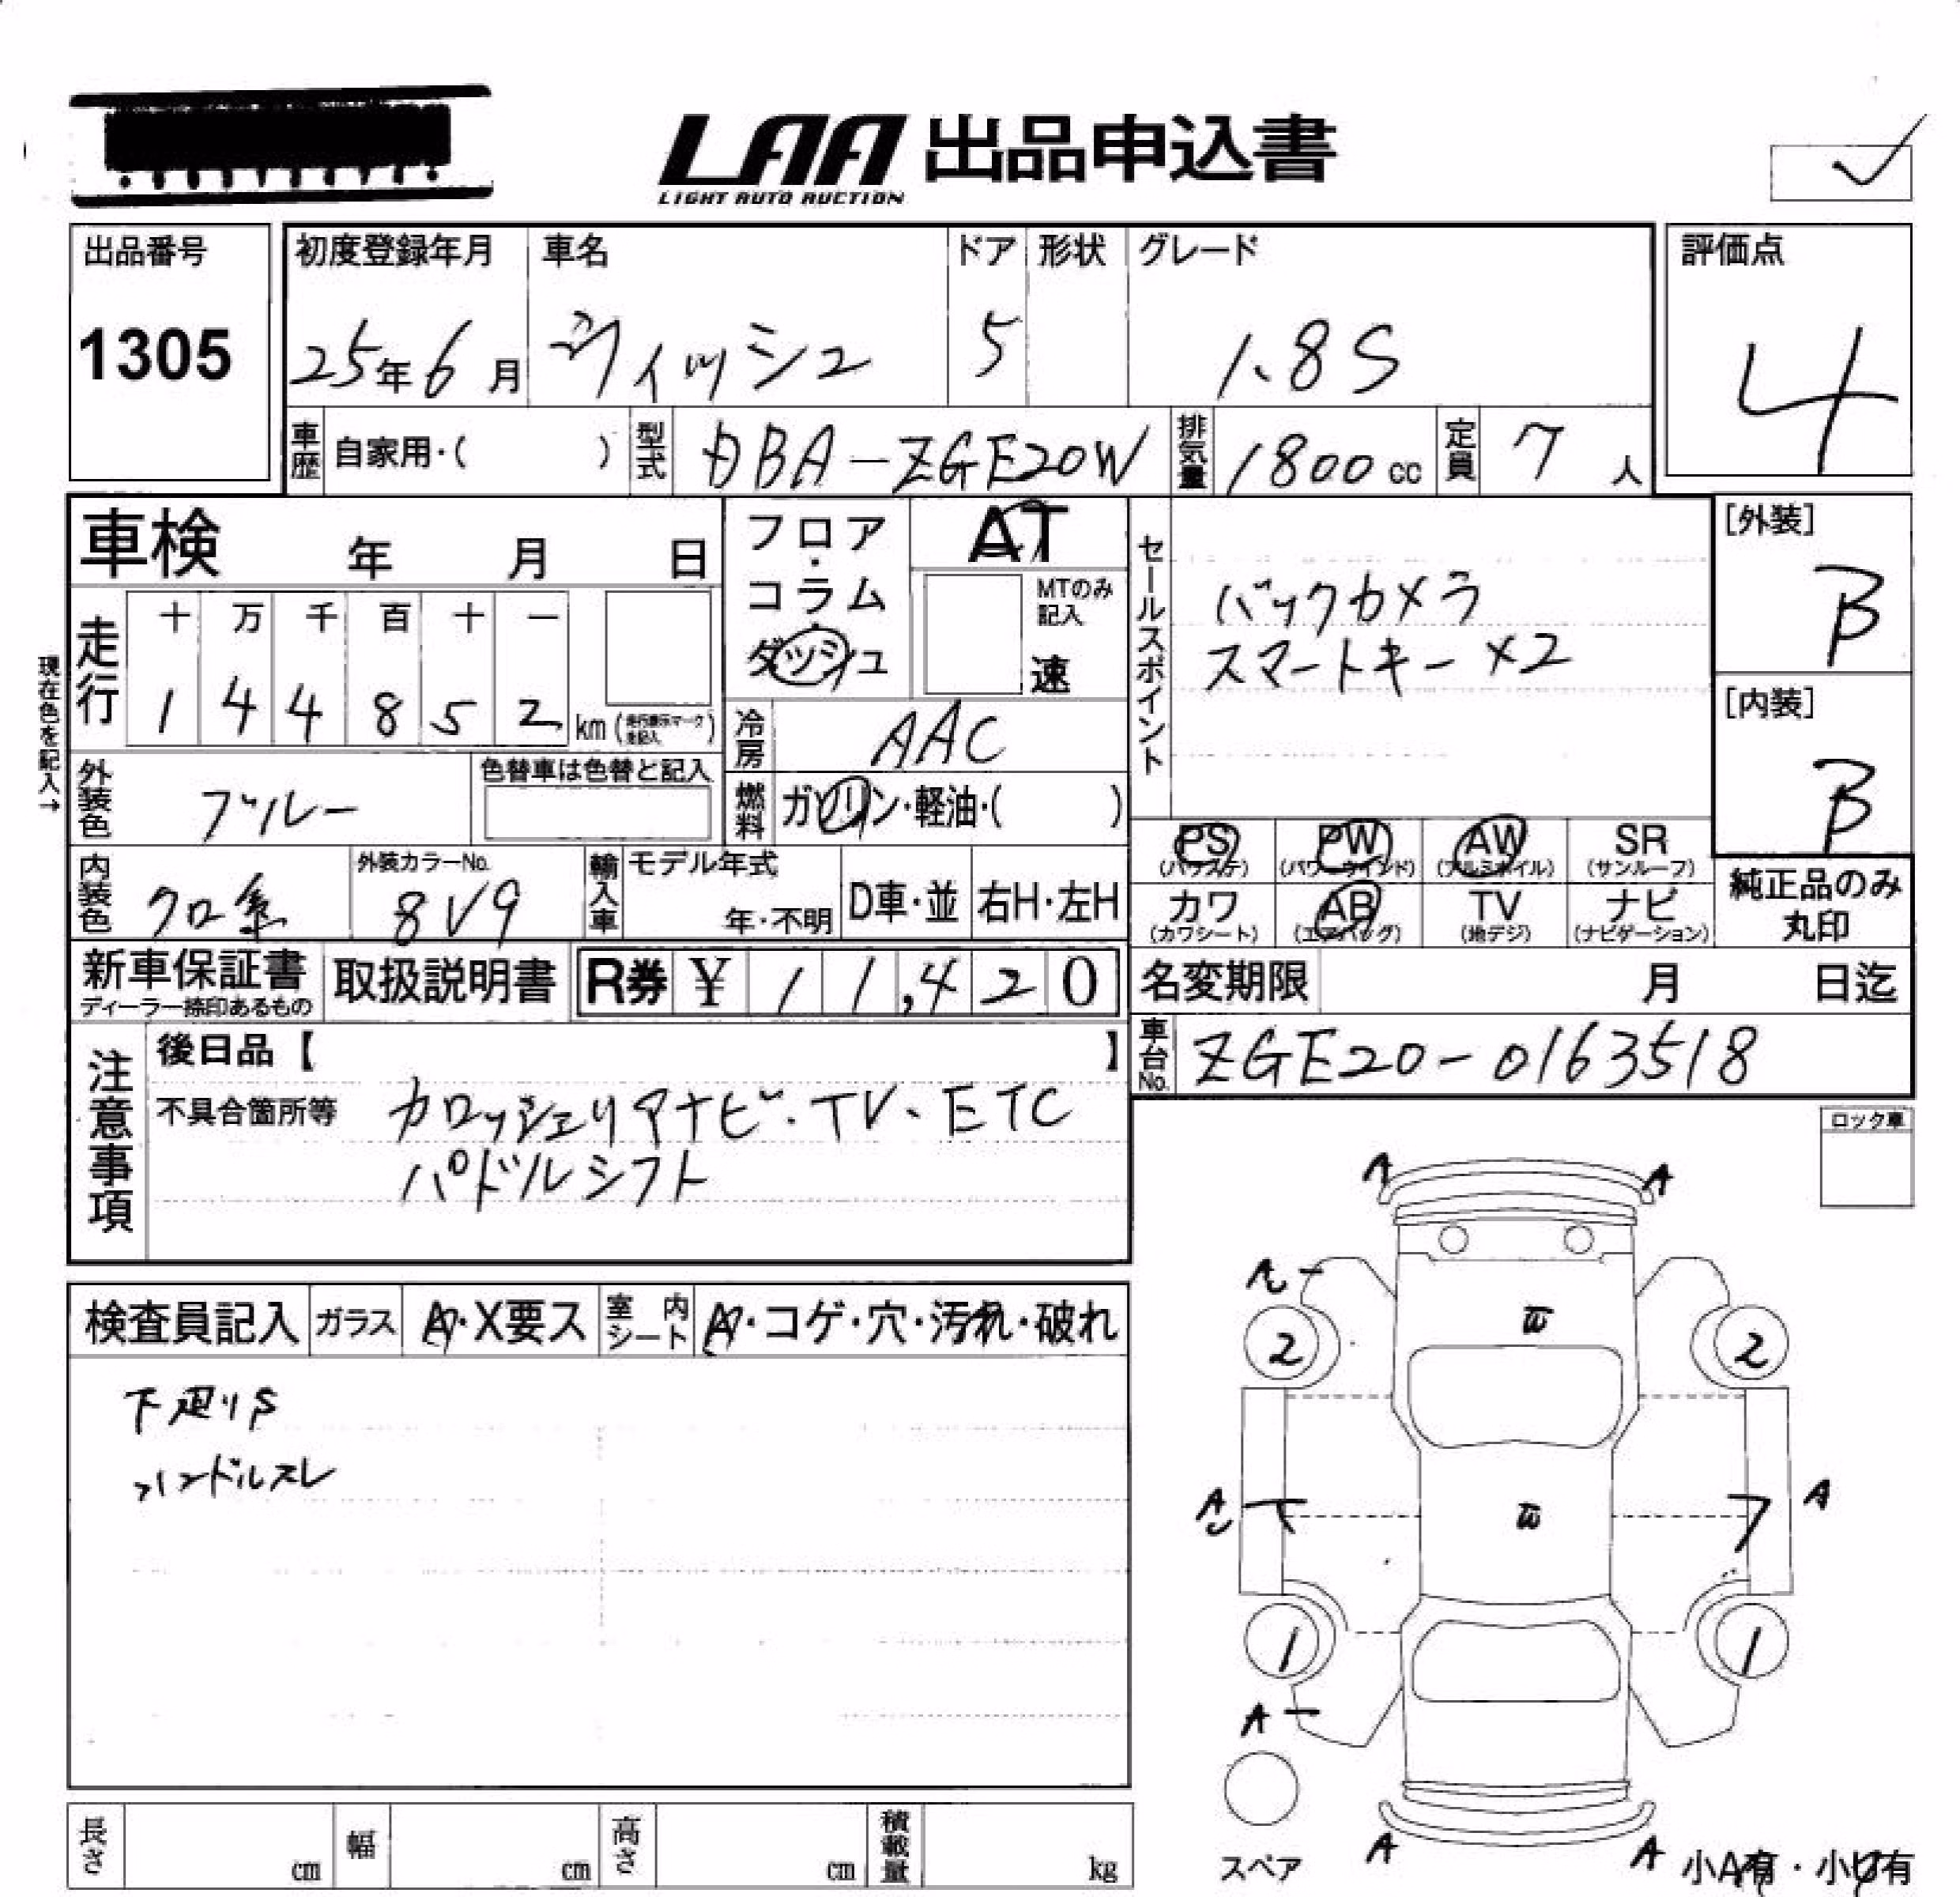 LAA 出品申込書
LIGHT AUTO AUCTION
出品番号
1305
初度登録年月
25年6月
車名
ヴィッシュ
ドア
5
形状
グレード
1.8S
評価点
4
車歴
自家用・( )
型式
DBA-ZGE20W
排気量
1800cc
定員
7人
車検 年 月 日
フロア・コラム・ダッシュ
AT
MTのみ記入
速
セールスポイント
バックカメラ
スマートキー×2
[外装]
B
[内装]
B
現在色を記入→
走行
十 万 千 百 十 一
1 4 4 8 5 2 km(走行表示マークを記入)
冷房
AAC
外装色
ブルー
色替車は色替と記入
燃料
ガソリン・軽油・( )
PS
(パワステ)
PW
(パワーウインド)
AW
(アルミホイル)
SR
(サンルーフ)
カワ
(カワシート)
AB
(エアバッグ)
TV
(地デジ)
ナビ
(ナビゲーション)
純正品のみ丸印
内装色
クロ系
外装カラーNo.
8V9
輸入車
モデル年式
年・不明
D車・並
右H・左H
新車保証書
ディーラー捺印あるもの
取扱説明書
R券 ¥11,420
名変期限 月 日迄
車台No.
ZGE20-0163518
注意事項
後日品【 】
不具合箇所等
カロッジェリアナビ・TV・ETC
パドルシフト
ロック車
検査員記入
ガラス
A・X要ス
室内シート
A・コゲ・穴・汚れ・破れ
下廻りS
ハンドルスレ
A A
A
W
2 2
A W A
1 1
A
スペア
A A
小A有・小U有
長さ cm
幅 cm
高さ cm
積載量 kg